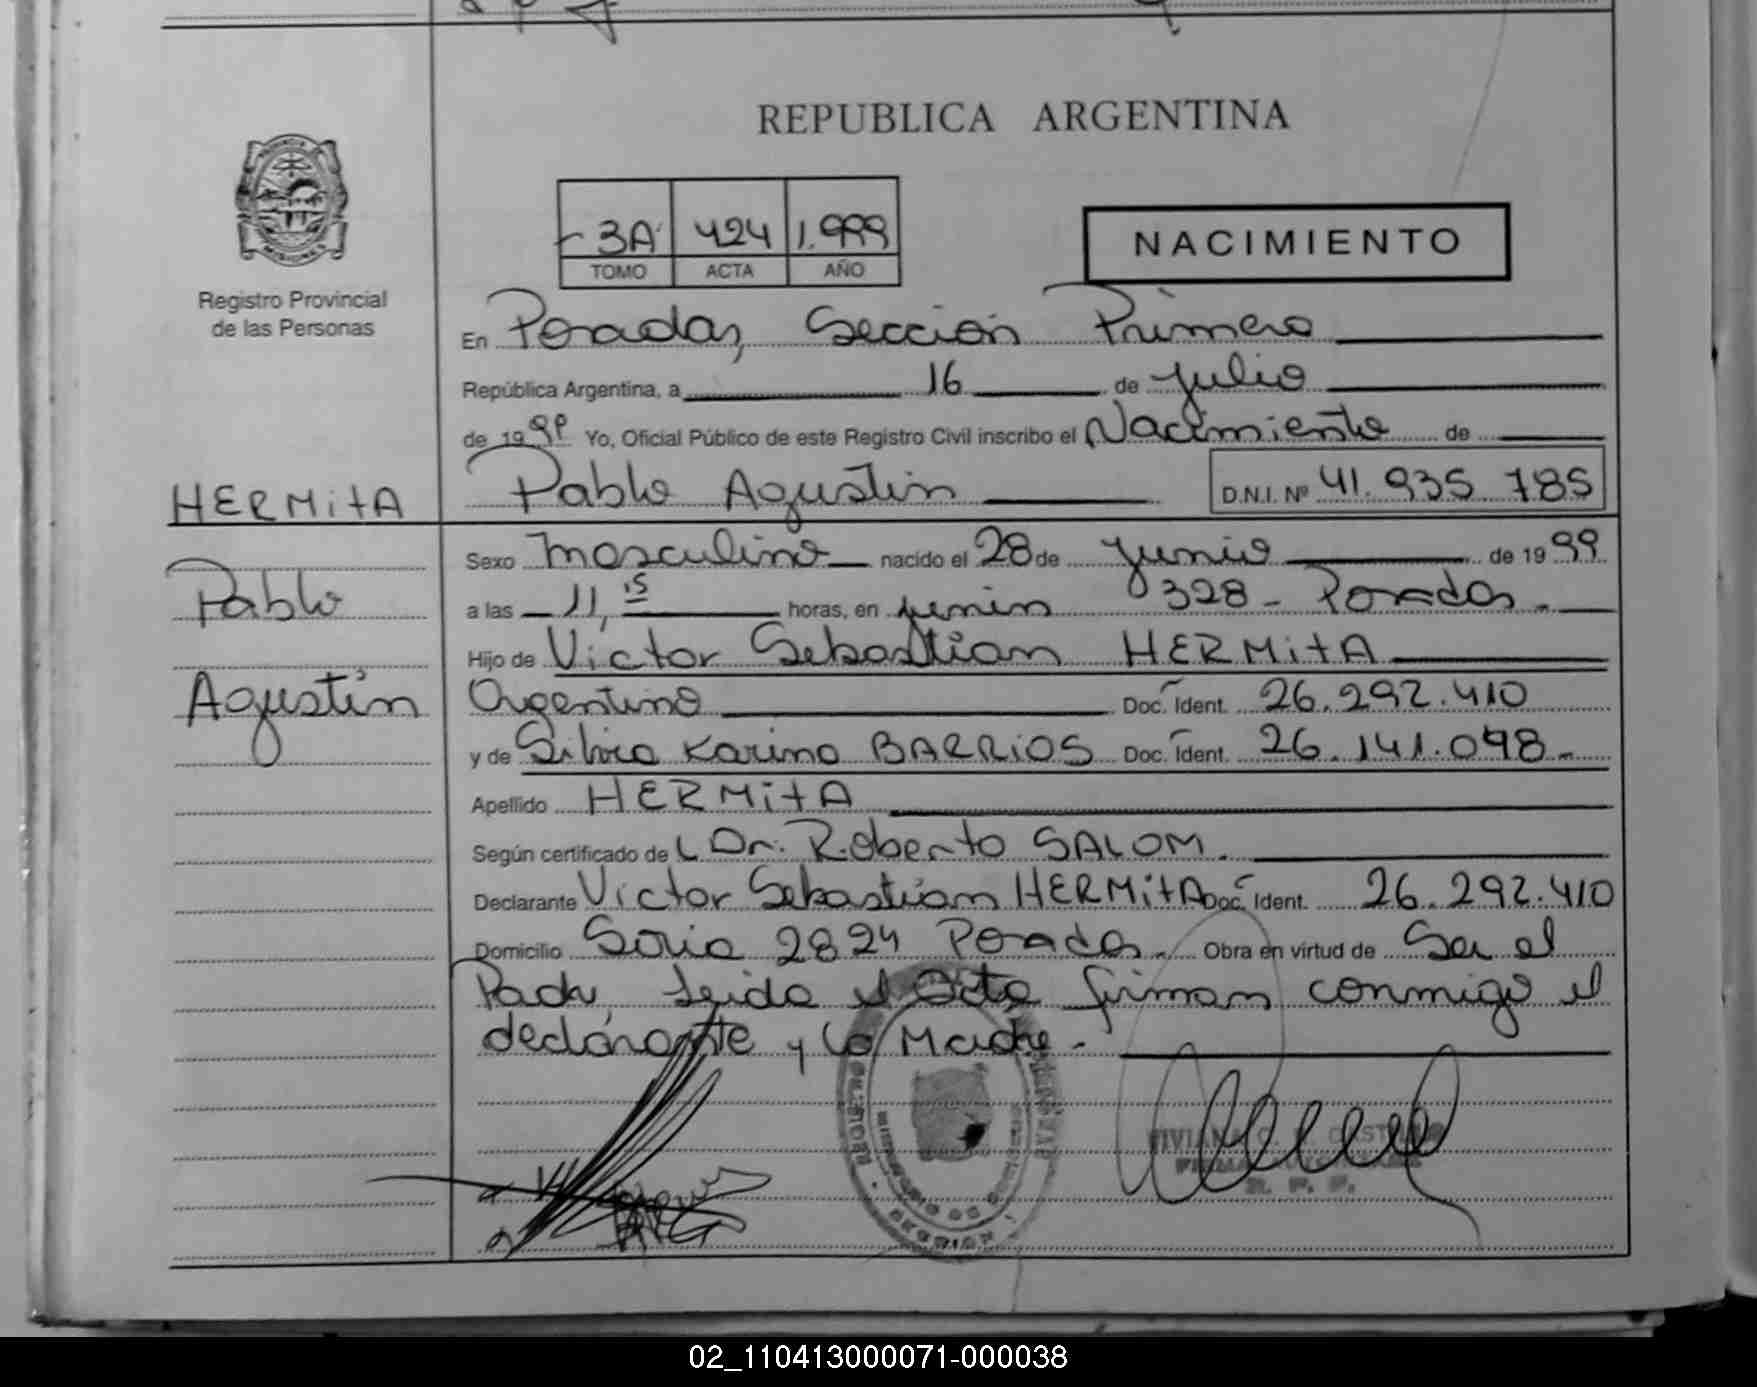 REPUBLICA ARGENTINA
3A 424 1.999
TOMO ACTA AÑO
NACIMIENTO
Registro Provincial
de las Personas
En Posadas, Sección Primera
República Argentina, a 16 de Julio
de 1999 Yo, Oficial Público de este Registro Civil inscribo el Nacimiento de
HERMITA
Pablo Agustín D.N.I. Nº 41.935.785
Sexo Masculino nacido el 28 de Junio de 1999
a las 11,15 horas, en Junín 328 - Posadas.
Pablo
Hijo de Víctor Sebastián HERMITA
Agustín
Argentino Doc. Ident. 26.292.410
y de Silvia Karina BARRIOS Doc. Ident. 26.141.098.-
Apellido HERMITA
Según certificado de Dr. Roberto SALOM.
Declarante Víctor Sebastián HERMITA Doc. Ident. 26.292.410
Domicilio Soria 2824 Posadas. Obra en virtud de Ser el
Padre, Leída el Acta firman conmigo el
declarante y la Madre.-
MISIONES
02_110413000071-000038